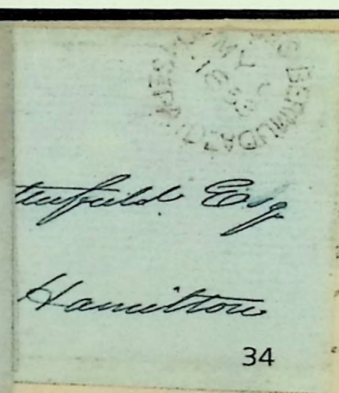 BERMUDA
MY
tterfield Esq
Hamilton
34